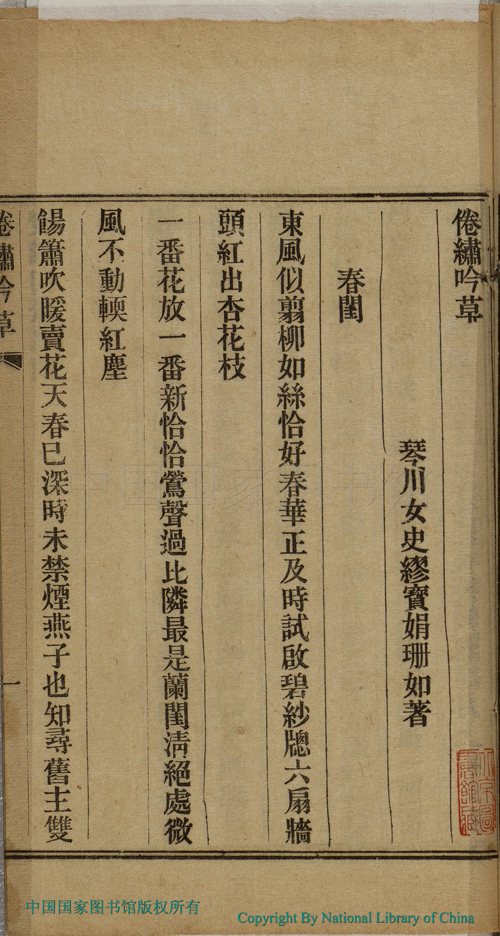 倦繡吟草
琴川女史繆寳娟珊如著
春閨
東風似翦柳如絲恰好春華正及時試啟碧紗牕六扇牆
頭紅出杏花枝
一番花放一番新恰恰鶯聲過比隣最是蘭閨清絕處微
風不動輭紅塵
餳簫吹暖賣花天春已深時未禁煙燕子也知尋舊主雙
倦繡吟草
一
中国国家图书馆版权所有
Copyright By National Library of China